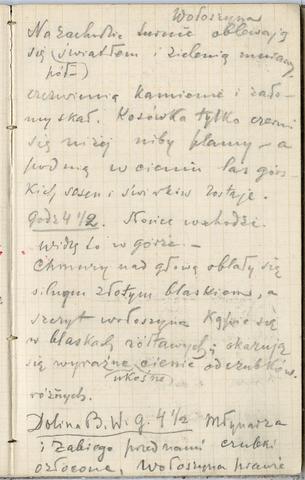 Wołoszyna
Na zachodzie turnie oblewają
się (światłem i zielenią mieszany
pół-)
czerwienią kamienne i zało-
my skał. Kosówka tylko czerni
się niżej niby plamy - a
pod nią w cieniu las górs-
kich sosen i świerków zostaje.
Godz 4 1/2. Słońce wschodzi.
widzę to w górze. -
Chmury nad głową oblały się
silnym złotym blaskiem, a
szczyt wołoszyna kąpie się
w blaskach żółtawych i ukazują
się wyraźne cienie od czubków
ukośne
różnych.
Dolina B. W. g. 4 1/2 Młynarza
i Żabiego przednami czubki
ozłocone, Wołoszyna prawie